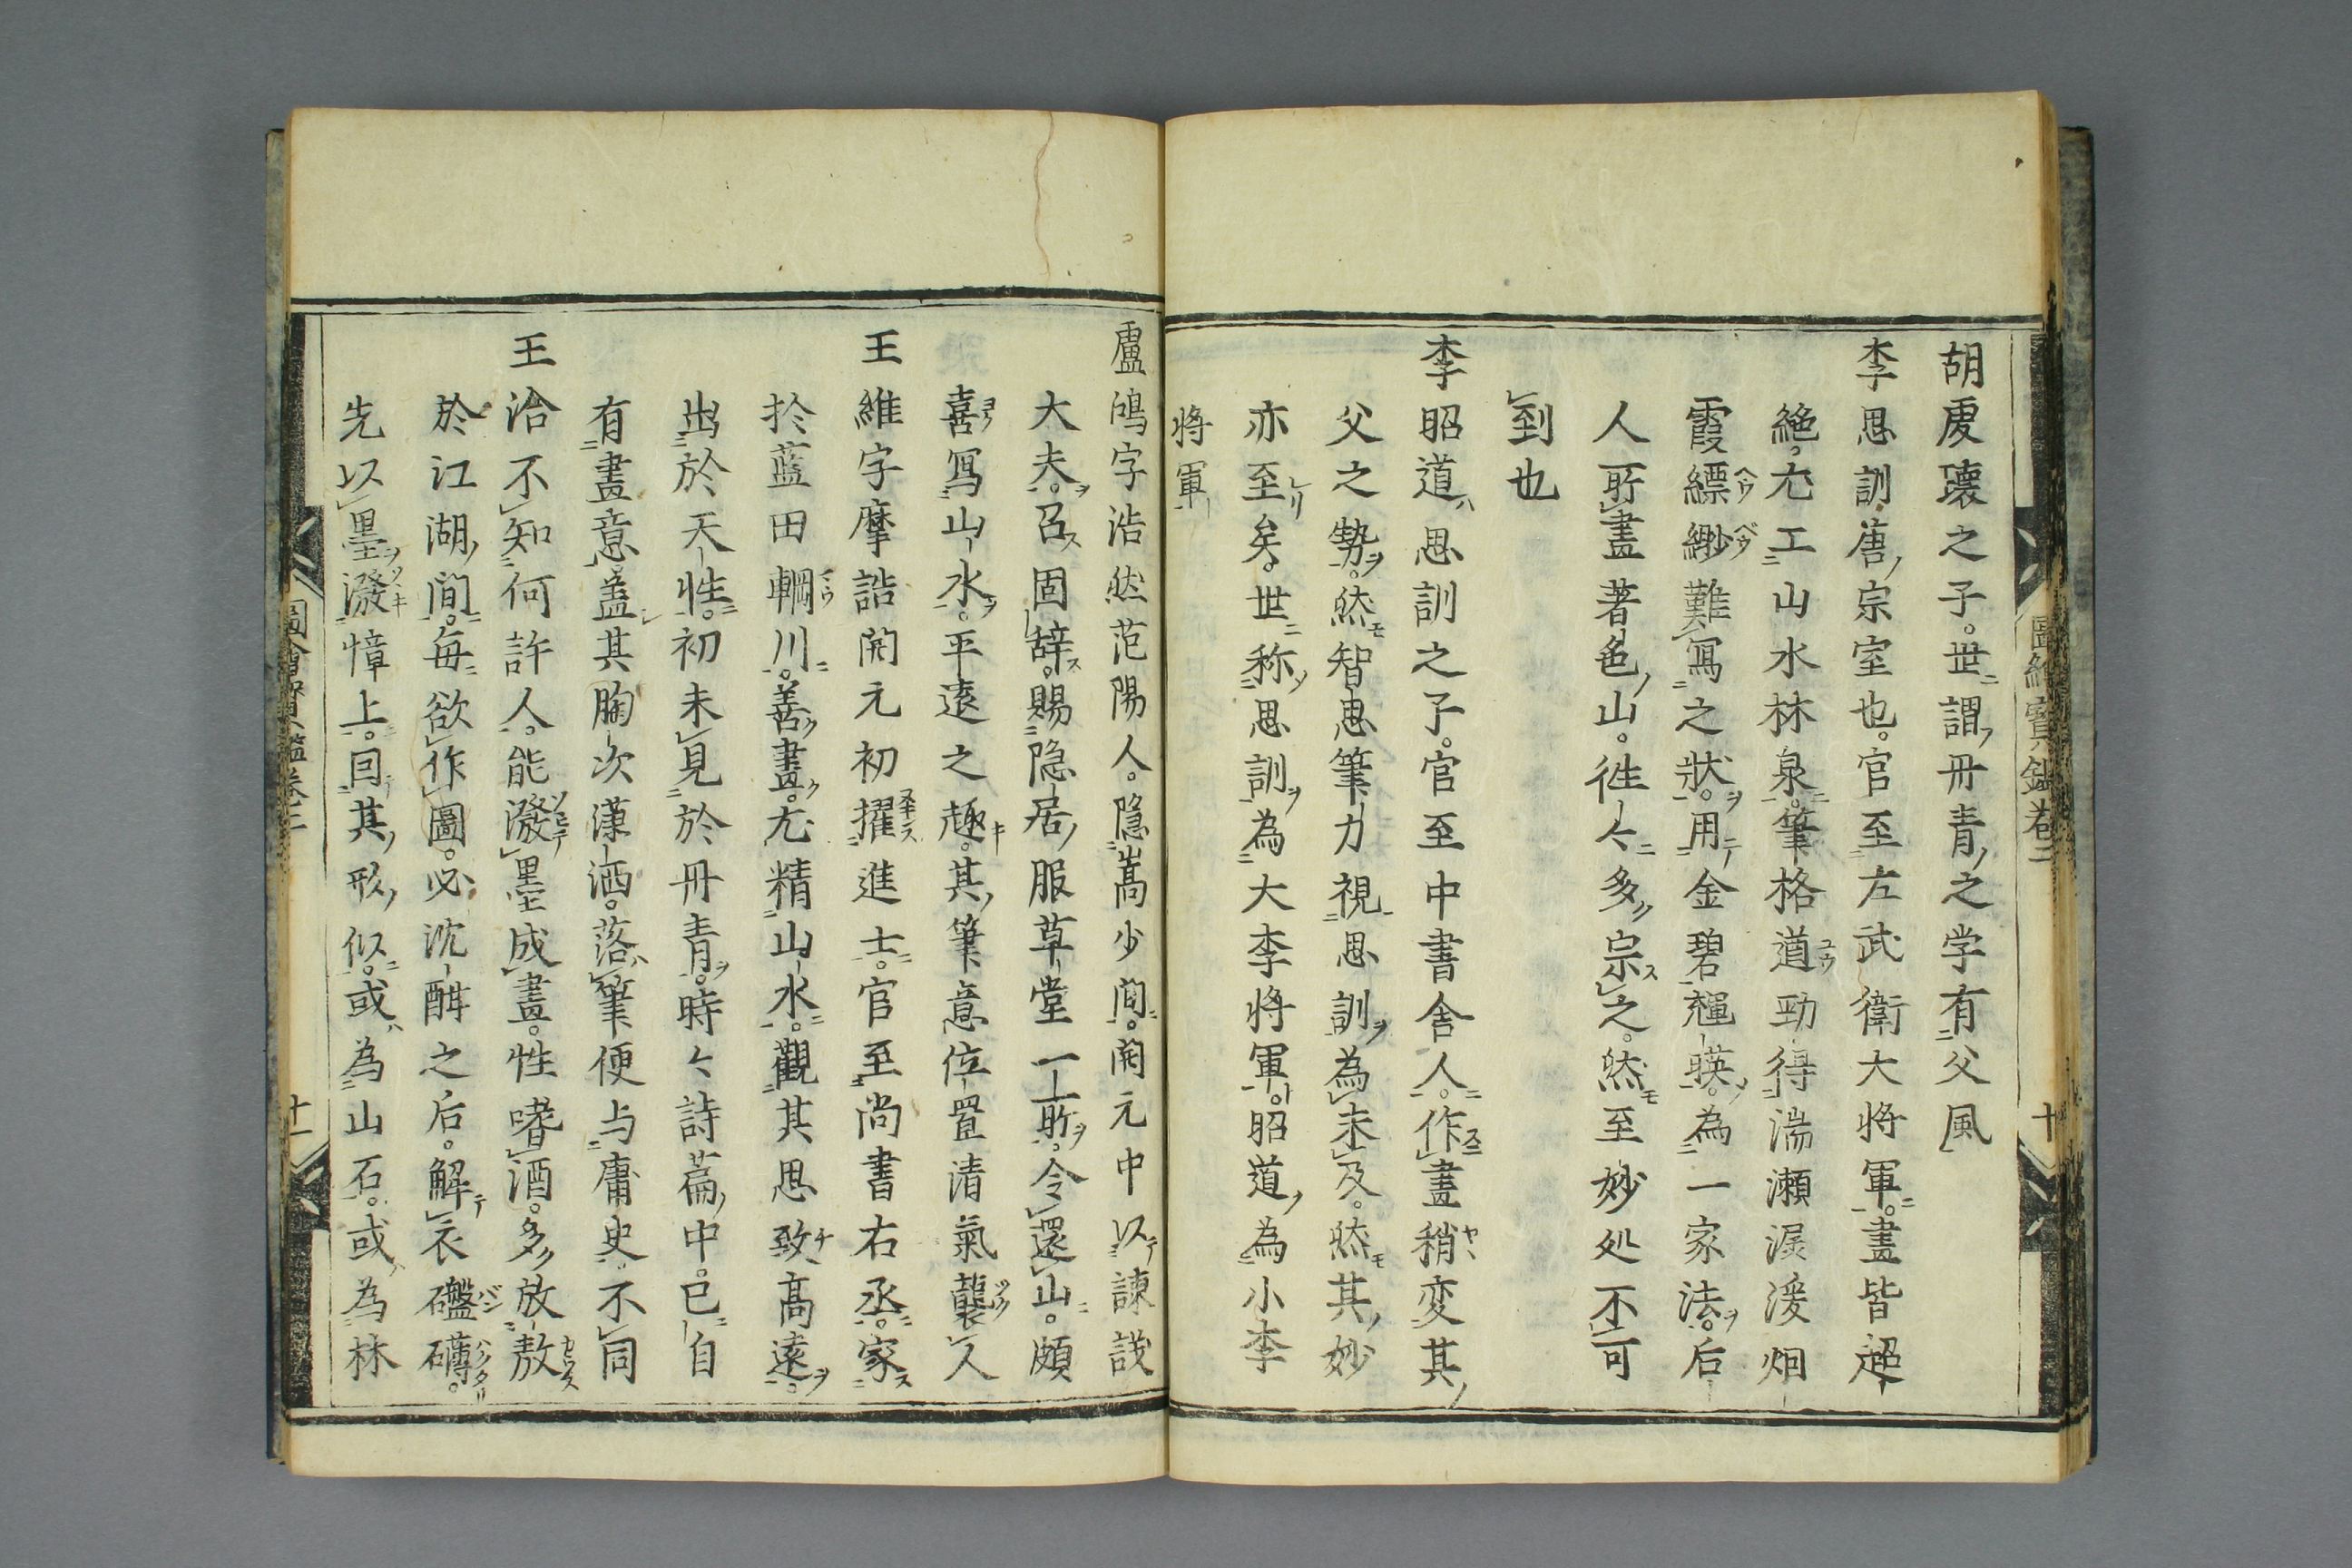 圖繪寶鑑卷二 十
胡虔瓌之子。世謂丹青之学有父風
李思訓唐宗室也。官至左武衛大将軍。畫皆超
絶。尤工山水林泉。筆格遒勁得湍瀬潺湲烟
霞縹緲難寫之狀。用金碧輝暎。為一家法。后
人所畫著色山。往々多宗之。然至妙处不可
到也
李昭道思訓之子。官至中書舎人。作畫稍変其
父之勢。然智恵筆力視思訓為未及。然其妙
亦至矣。世称思訓為大李将軍。昭道為小李
将軍
盧鴻字浩然范陽人。隐嵩少間。開元中以諫議
大夫。召固辞。賜隐居服草堂一所。令還山。頗
喜寫山水。平遠之趣。其筆意位置清氣襲人
王維字摩詰開元初擢進士。官至尚書右丞。家
於藍田輞川。善畫。尤精山水。觀其思致高遠。
出於天性。初未見於丹青。時々詩萹中。已自
有畫意。盖其胸次漾洒。落筆便与庸史不同
王洽不知何許人。能潑墨成畫。性嗜酒。多放敖
於江湖間。毎欲作圖。必沈酣之后。解衣礠礴。
先以墨潑幛上。囙其形似。或為山石。或為林
圖繪寶鑑卷二 十一